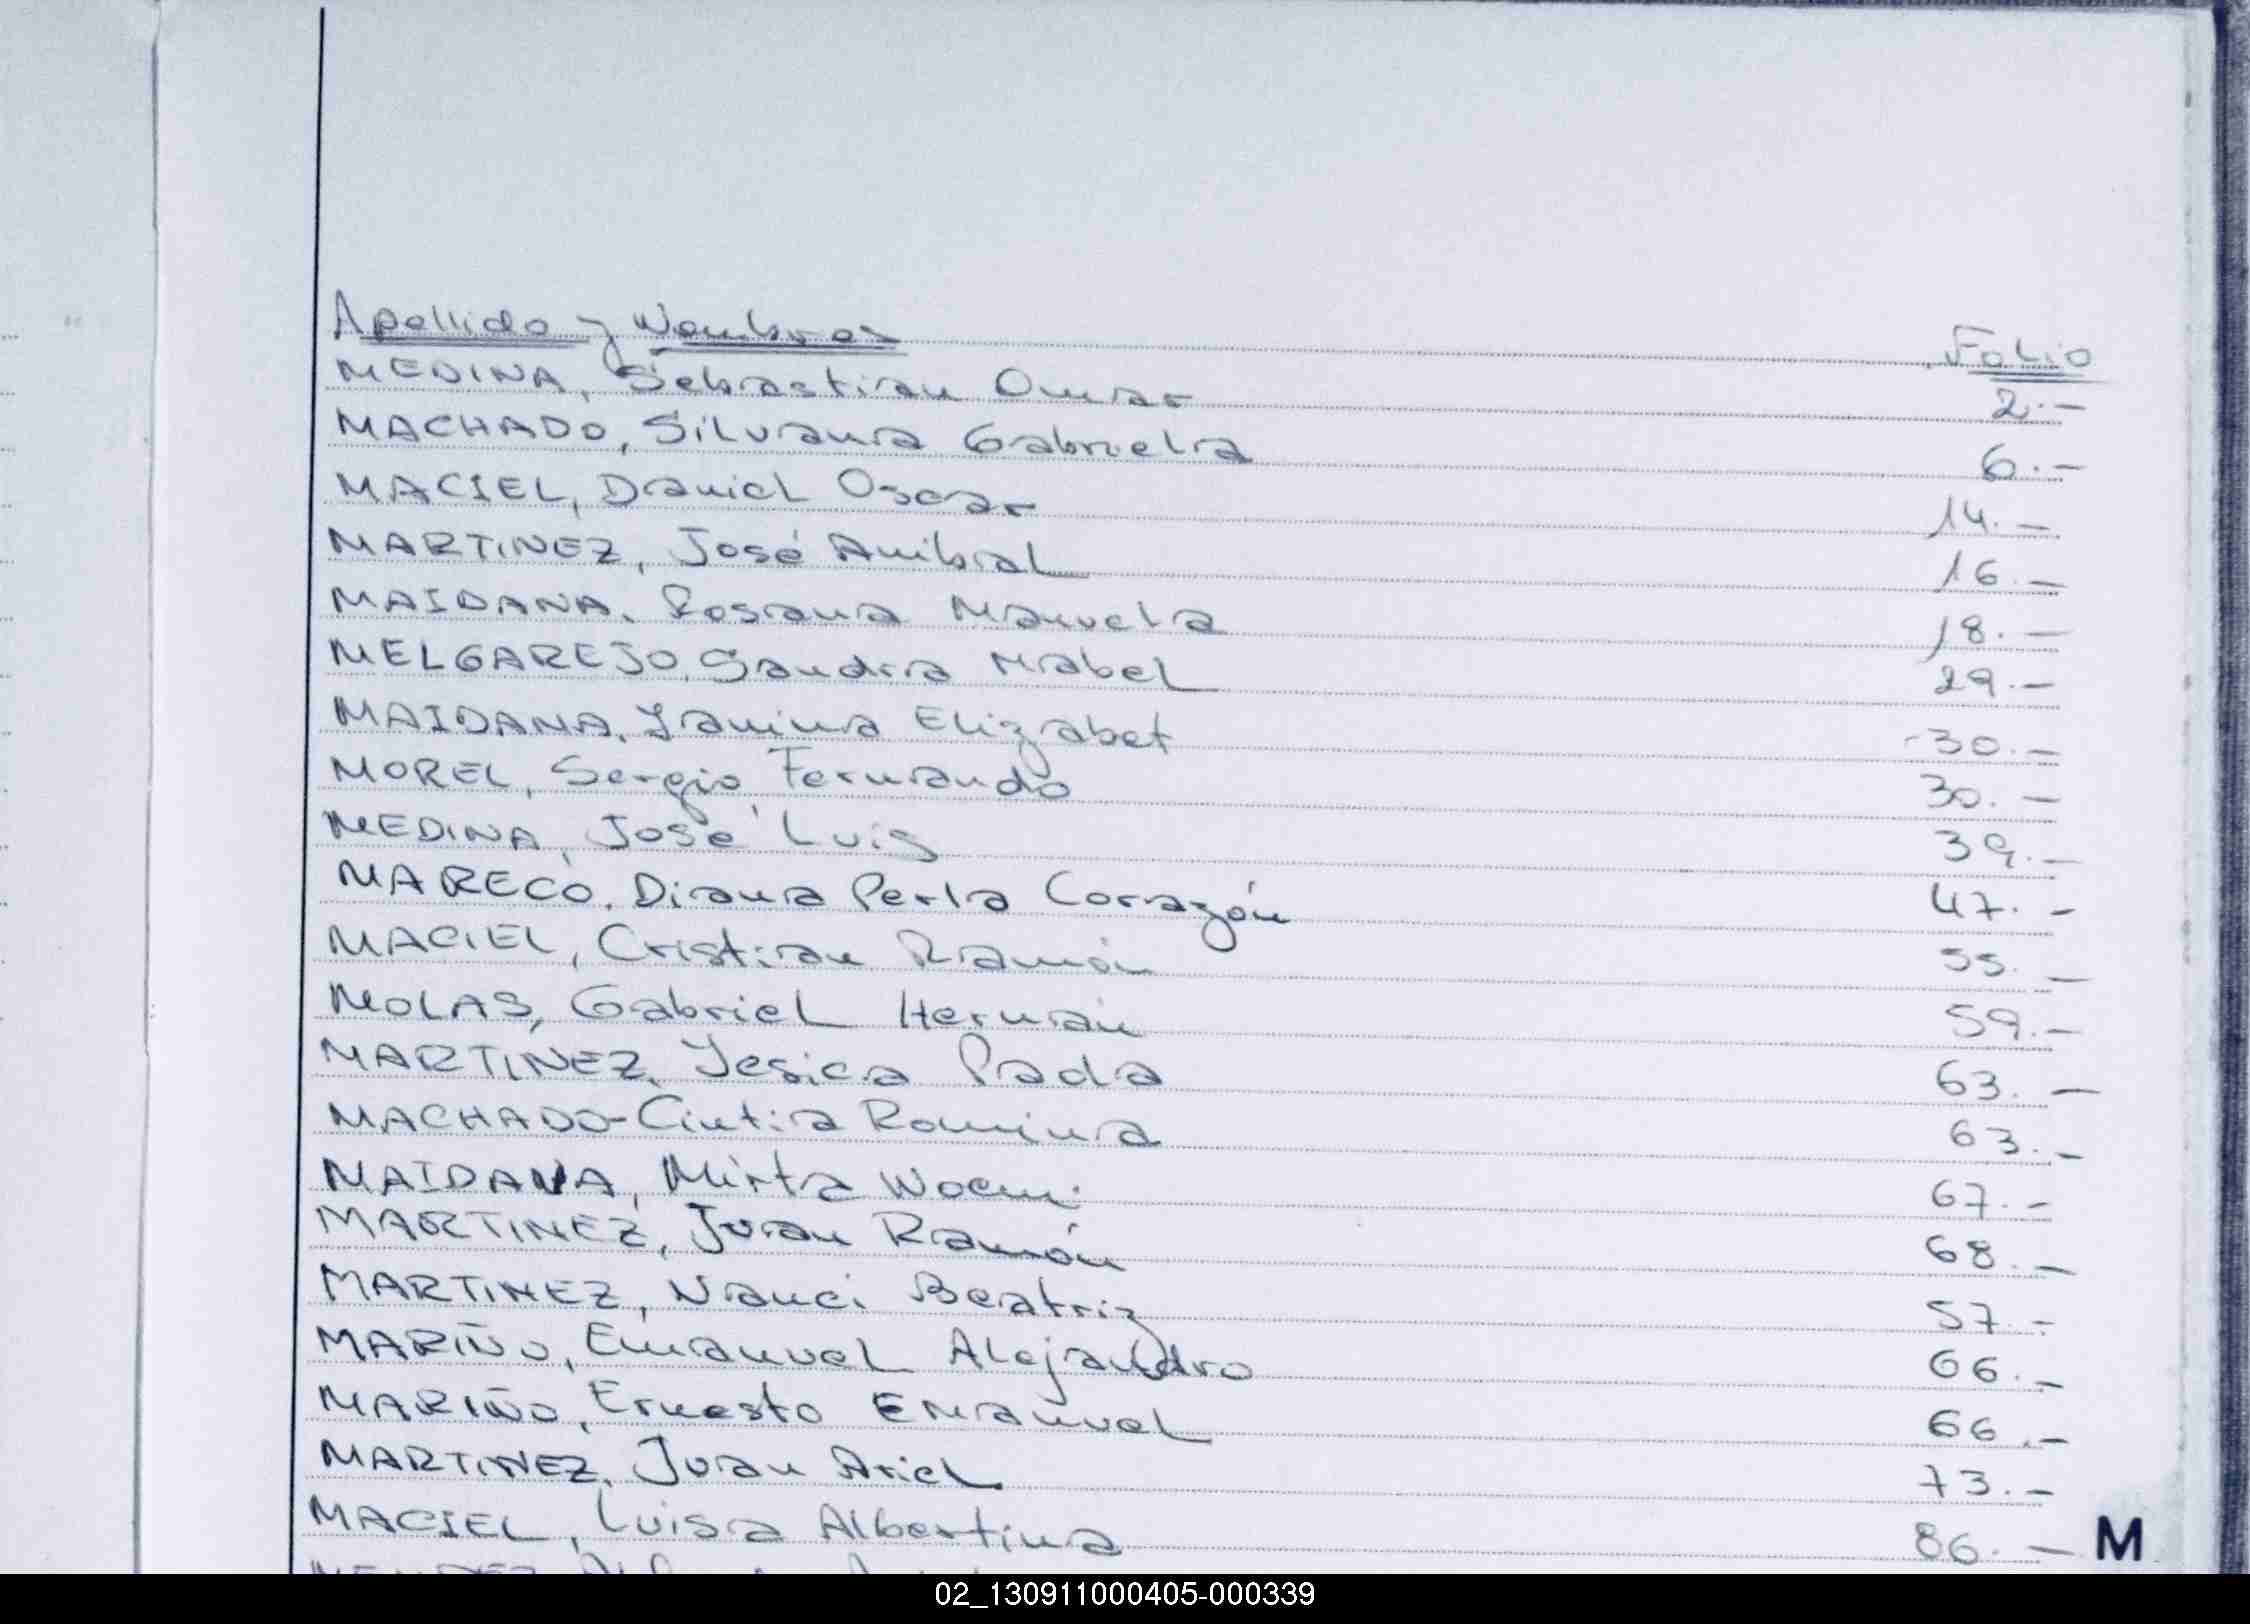 Apellido y Nombres Folio
MEDINA, Sebastian Omar 2.-
MACHADO, Silvana Gabriela 6.-
MACIEL, Daniel Oscar 14.-
MARTINEZ, José Anibal 16.-
MAIDANA, Rosana Manuela 18.-
MELGAREJO, Sandra Mabel 29.-
MAIDANA, Yanina Elizabet 30.-
MOREL, Sergio Fernando 30.-
MEDINA, José Luis 39.-
MARECO, Diana Perla Corazón 47.-
MACIEL, Cristian Ramón 55.-
MOLAS, Gabriel Hernán 59.-
MARTINEZ, Yesica Paola 63.-
MACHADO-Cintia Romina 63.-
MAIDANA, Mirta Noemi 67.-
MARTINEZ, Juan Ramón 68.-
MARTINEZ, Nanci Beatriz 57.-
MARIÑO, Emanuel Alejandro 66.-
MARIÑO, Ernesto Emanuel 66.-
MARTINEZ, Juan Ariel 73.-
MACIEL, Luisa Albertina 86.- M
02_130911000405-000339